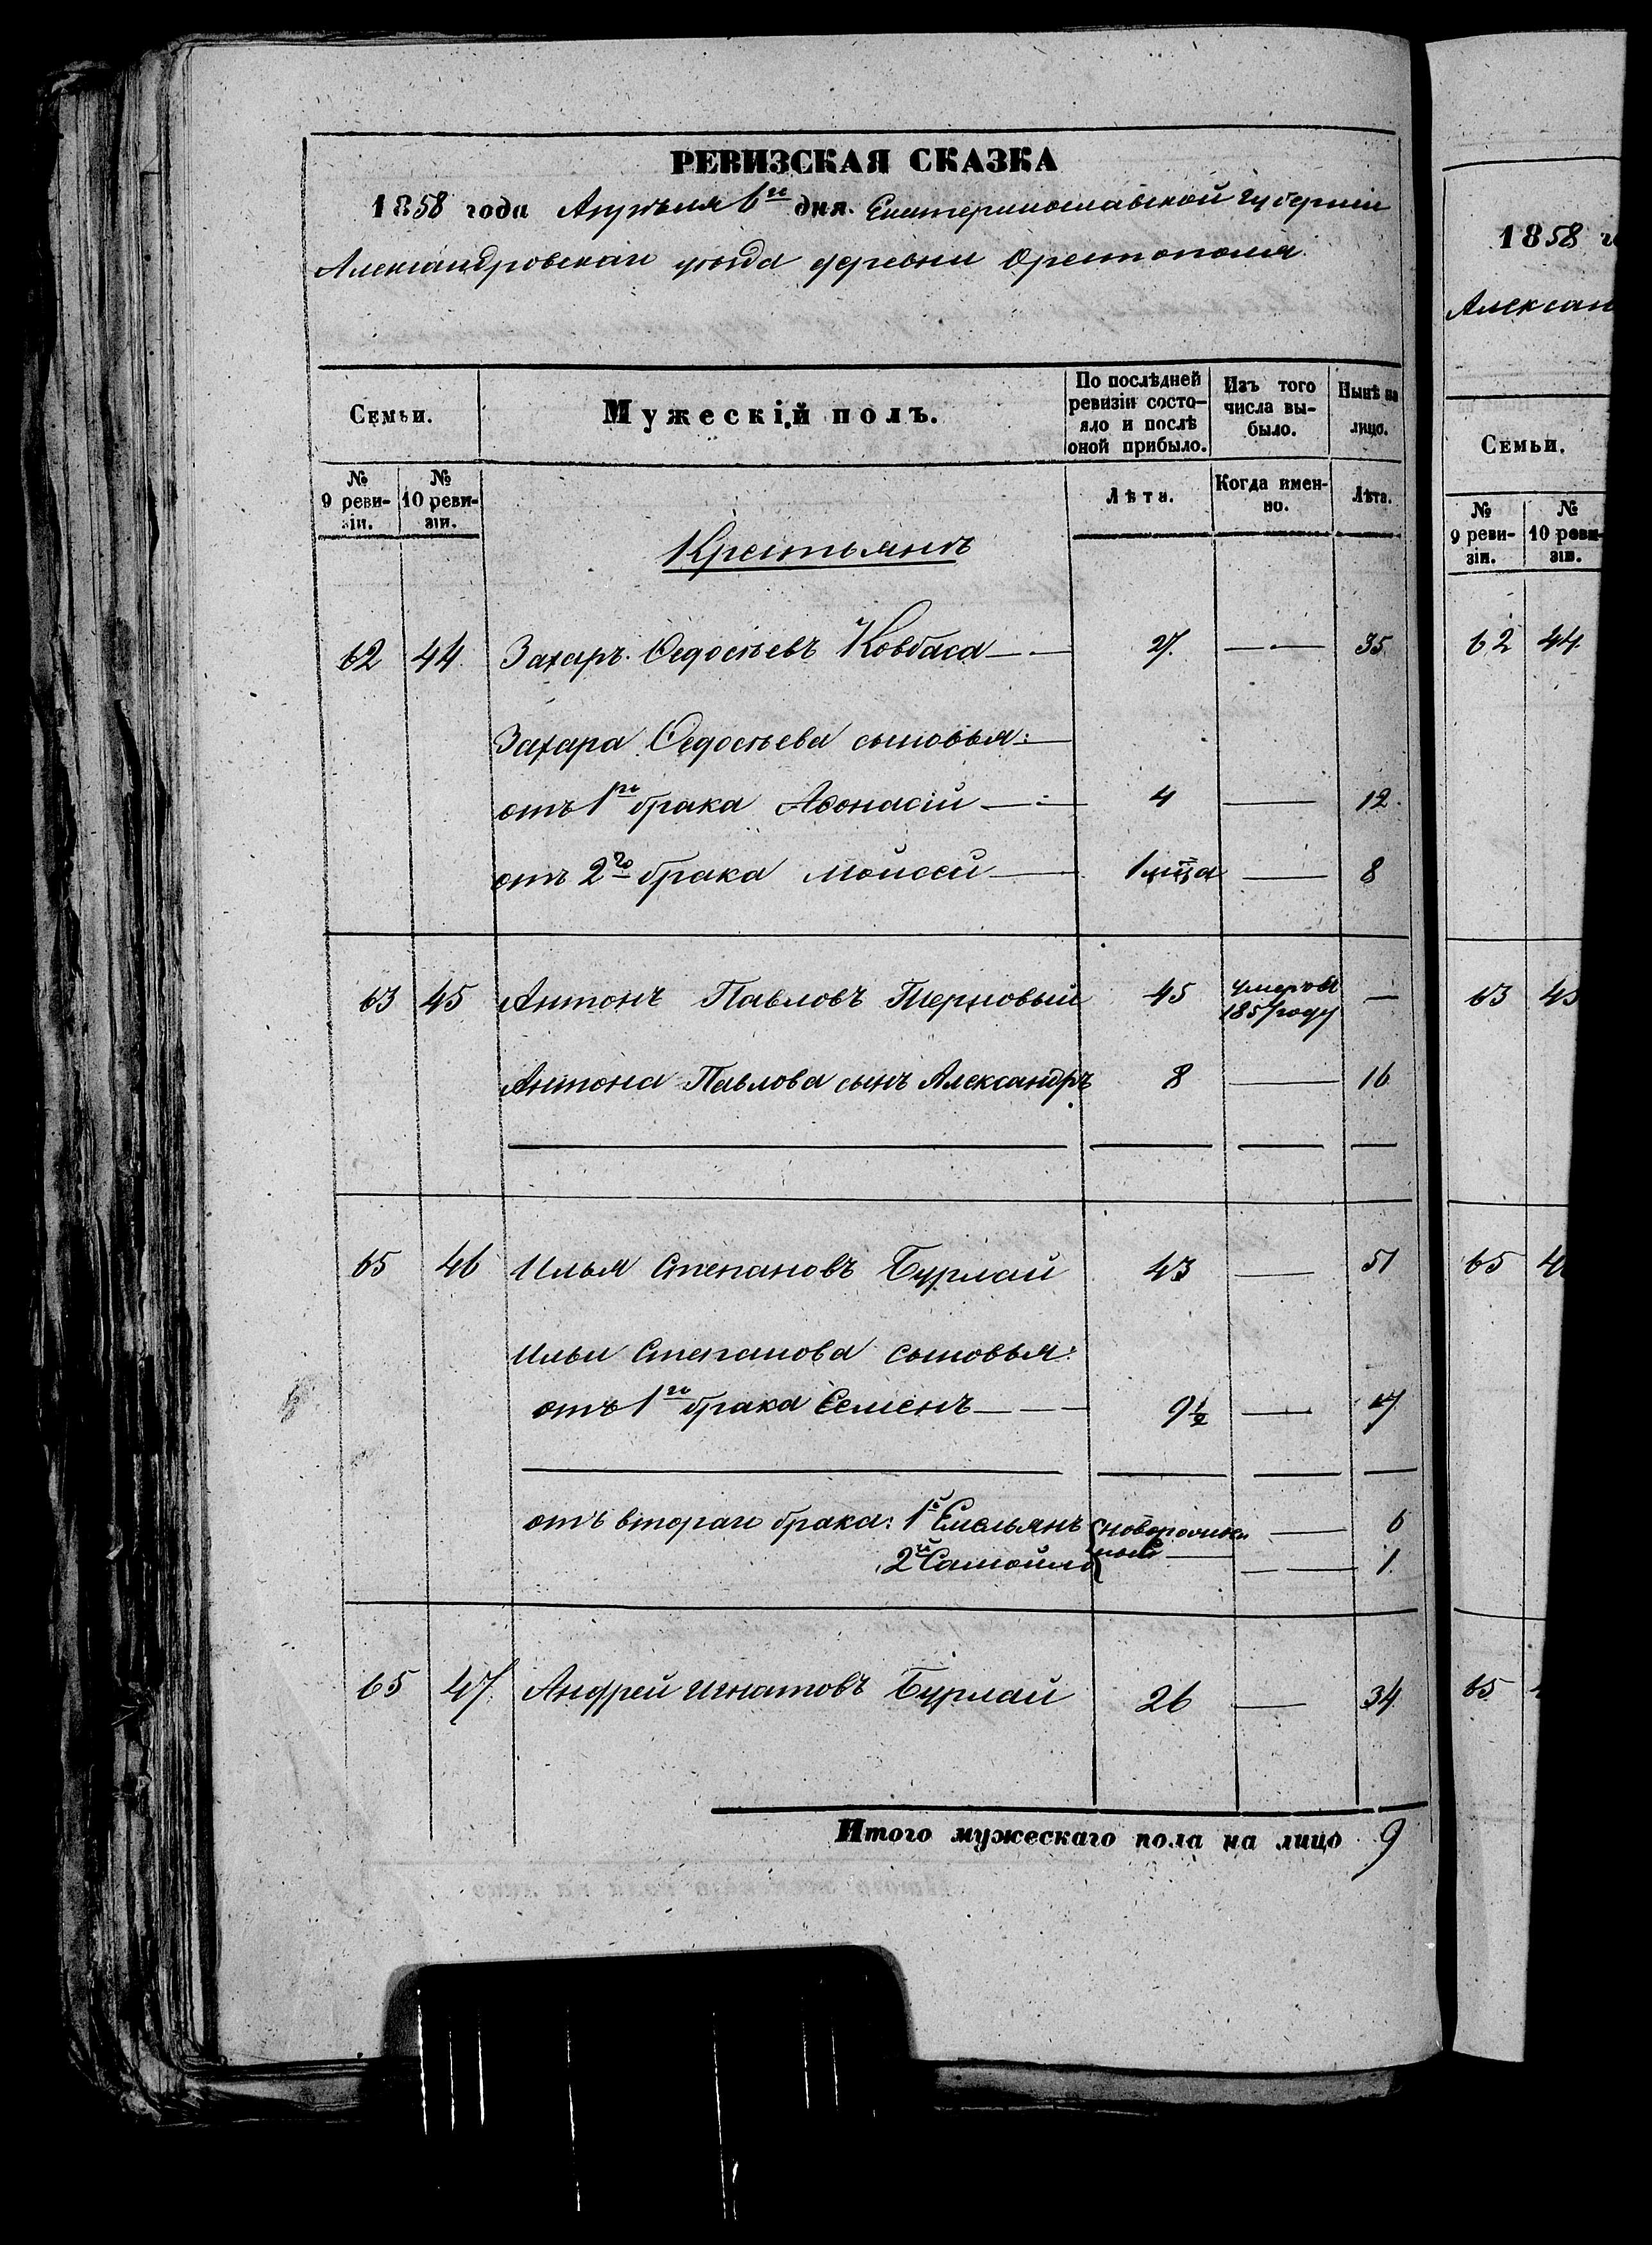 РЕВИЗСКАЯ СКАЗКА
1858 года Апрѣля 6го дня. Екатеринославской губерніи
Александровскаго уѣзда деревни Орестополя.
Семьи.
Мужескій полъ.
По послѣдней ревизіи состо-
яло и послѣ
оной прибыло.
Изъ того
числа вы-
было.
Нынѣ на
лицо.
№
9 реви-
зіи.
№
10 реви-
зіи.
Лѣта.
Когда имен-
но.
Лѣта.
Крестьянъ
62 44 Захаръ Ѳедосѣевъ Ковбаса — 27. — 35.
Захара Ѳедосѣева сыновья:
отъ 1го брака Аѳонасій — 4 — 12.
отъ 2го брака Мойсей — 1 мца — 8
63 45 Антонъ Павловъ Терновый 45 умеръ въ
1857 году —
Антона Павлова сынъ Александръ 8 — 16
65 46 Илья Степановъ Бурлай 43 — 51
Ильи Степанова сыновья:
отъ 1го брака Семенъ — 9½ — 17
отъ втораго брака: 1й Емельянъ новорожден — 6
2й Самойло ные — 1.
65 47. Андрей Игнатовъ Бурлай 26 — 34
Итого мужескаго пола на лицо 9
1858 го
Александ
Семьи.
№
9 реви-
зіи.
№
10 реви-
зіи.
62 44.
63 45
65 46
65